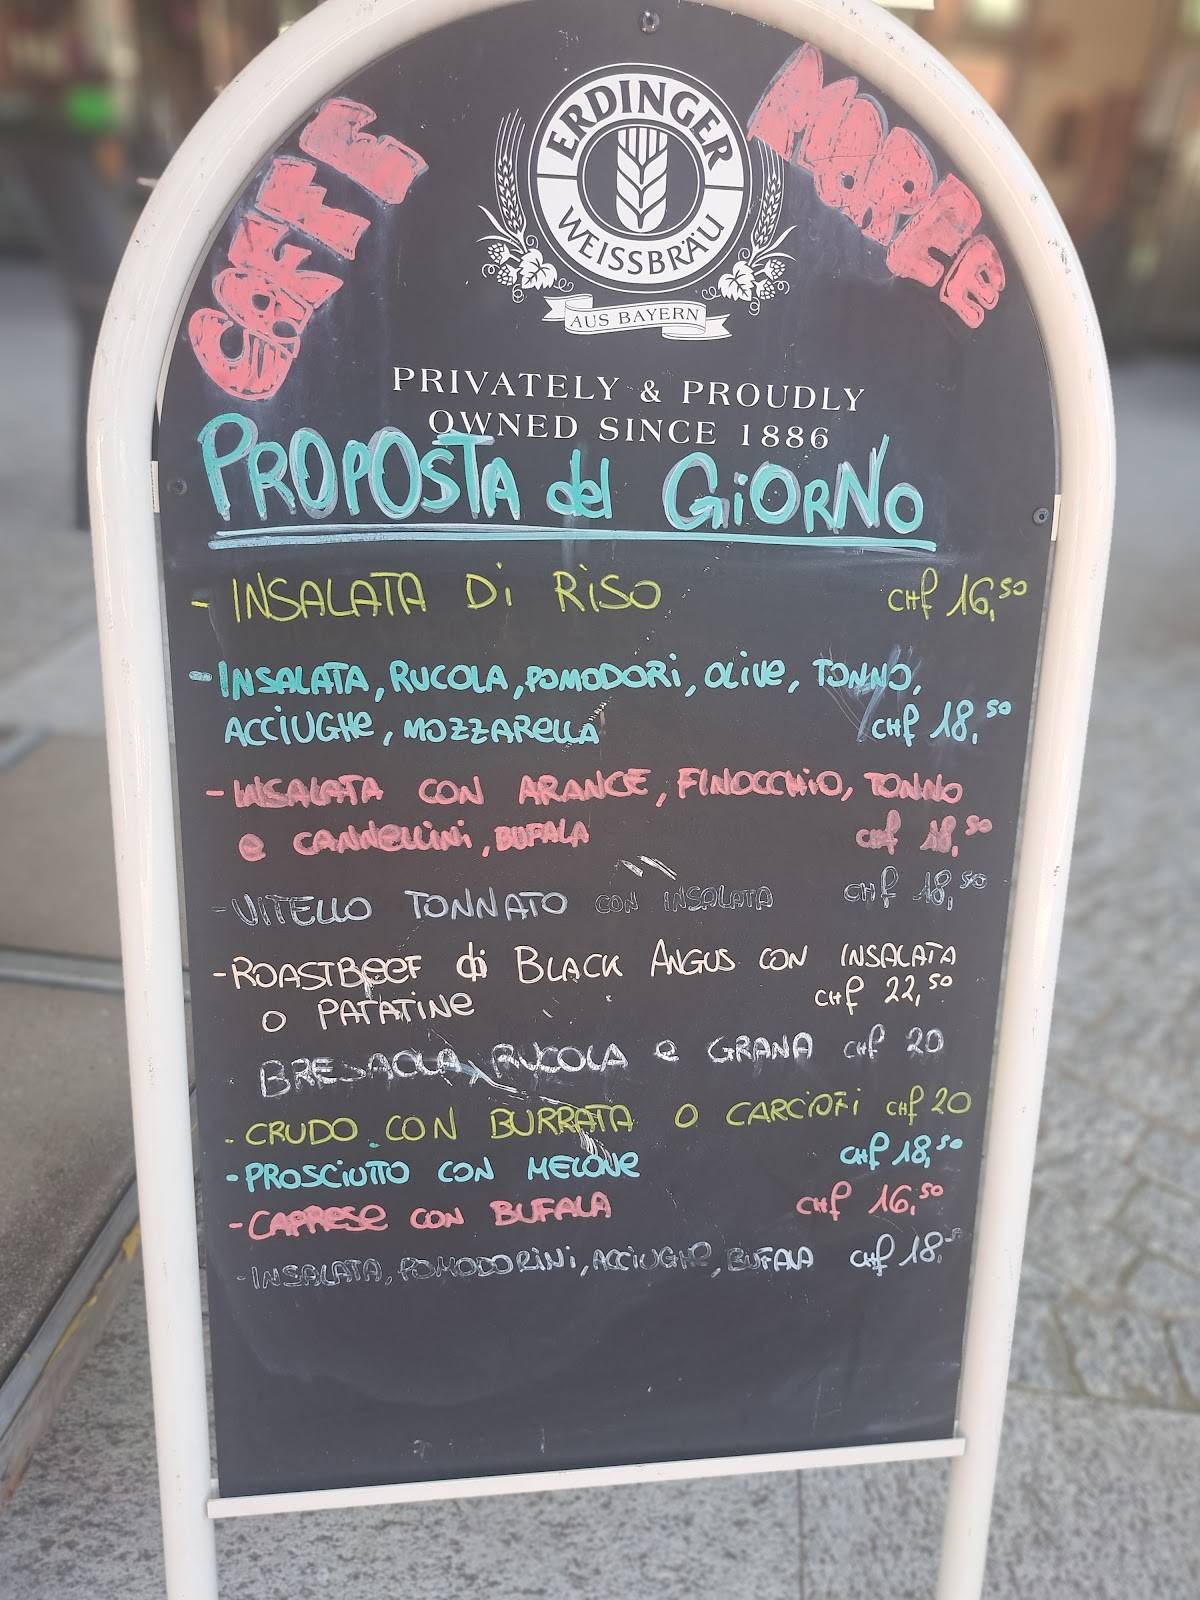 CAFFE
MORÈE
ERDINGER
WEISSBRÄU
AUS BAYERN
PRIVATELY & PROUDLY
OWNED SINCE 1886
PROPOSTA del GiORNO
- INSALATA Di RiSO CHf 16,50
- INSALATA, RUCOLA, POMODORi, OLiVe, TONNO,
ACCiUGHe, MOZZARELLA CHf 18,50
- INSALATA CON ARANCE, FINOCCHiO, TONNO
e CANNeLLiNi, BUFALA CHf 18,50
- VITELLO TONNATO CON INSALATA CHf 18,50
- ROASTBeeF di BLACK ANGUS CON INSALATA
O PATATiNe CHf 22,50
BRESAOLA, RUCOLA e GRANA CHf 20
- CRUDO CON BURRATA O CARCiOFi CHf 20
- PROSCiUTTO CON MELONe CHf 18,50
- CAPReSe CON BUFALA CHf 16,50
- INSALATA, POMODORiNi, ACCiUGHe, BUFALA CHf 18.